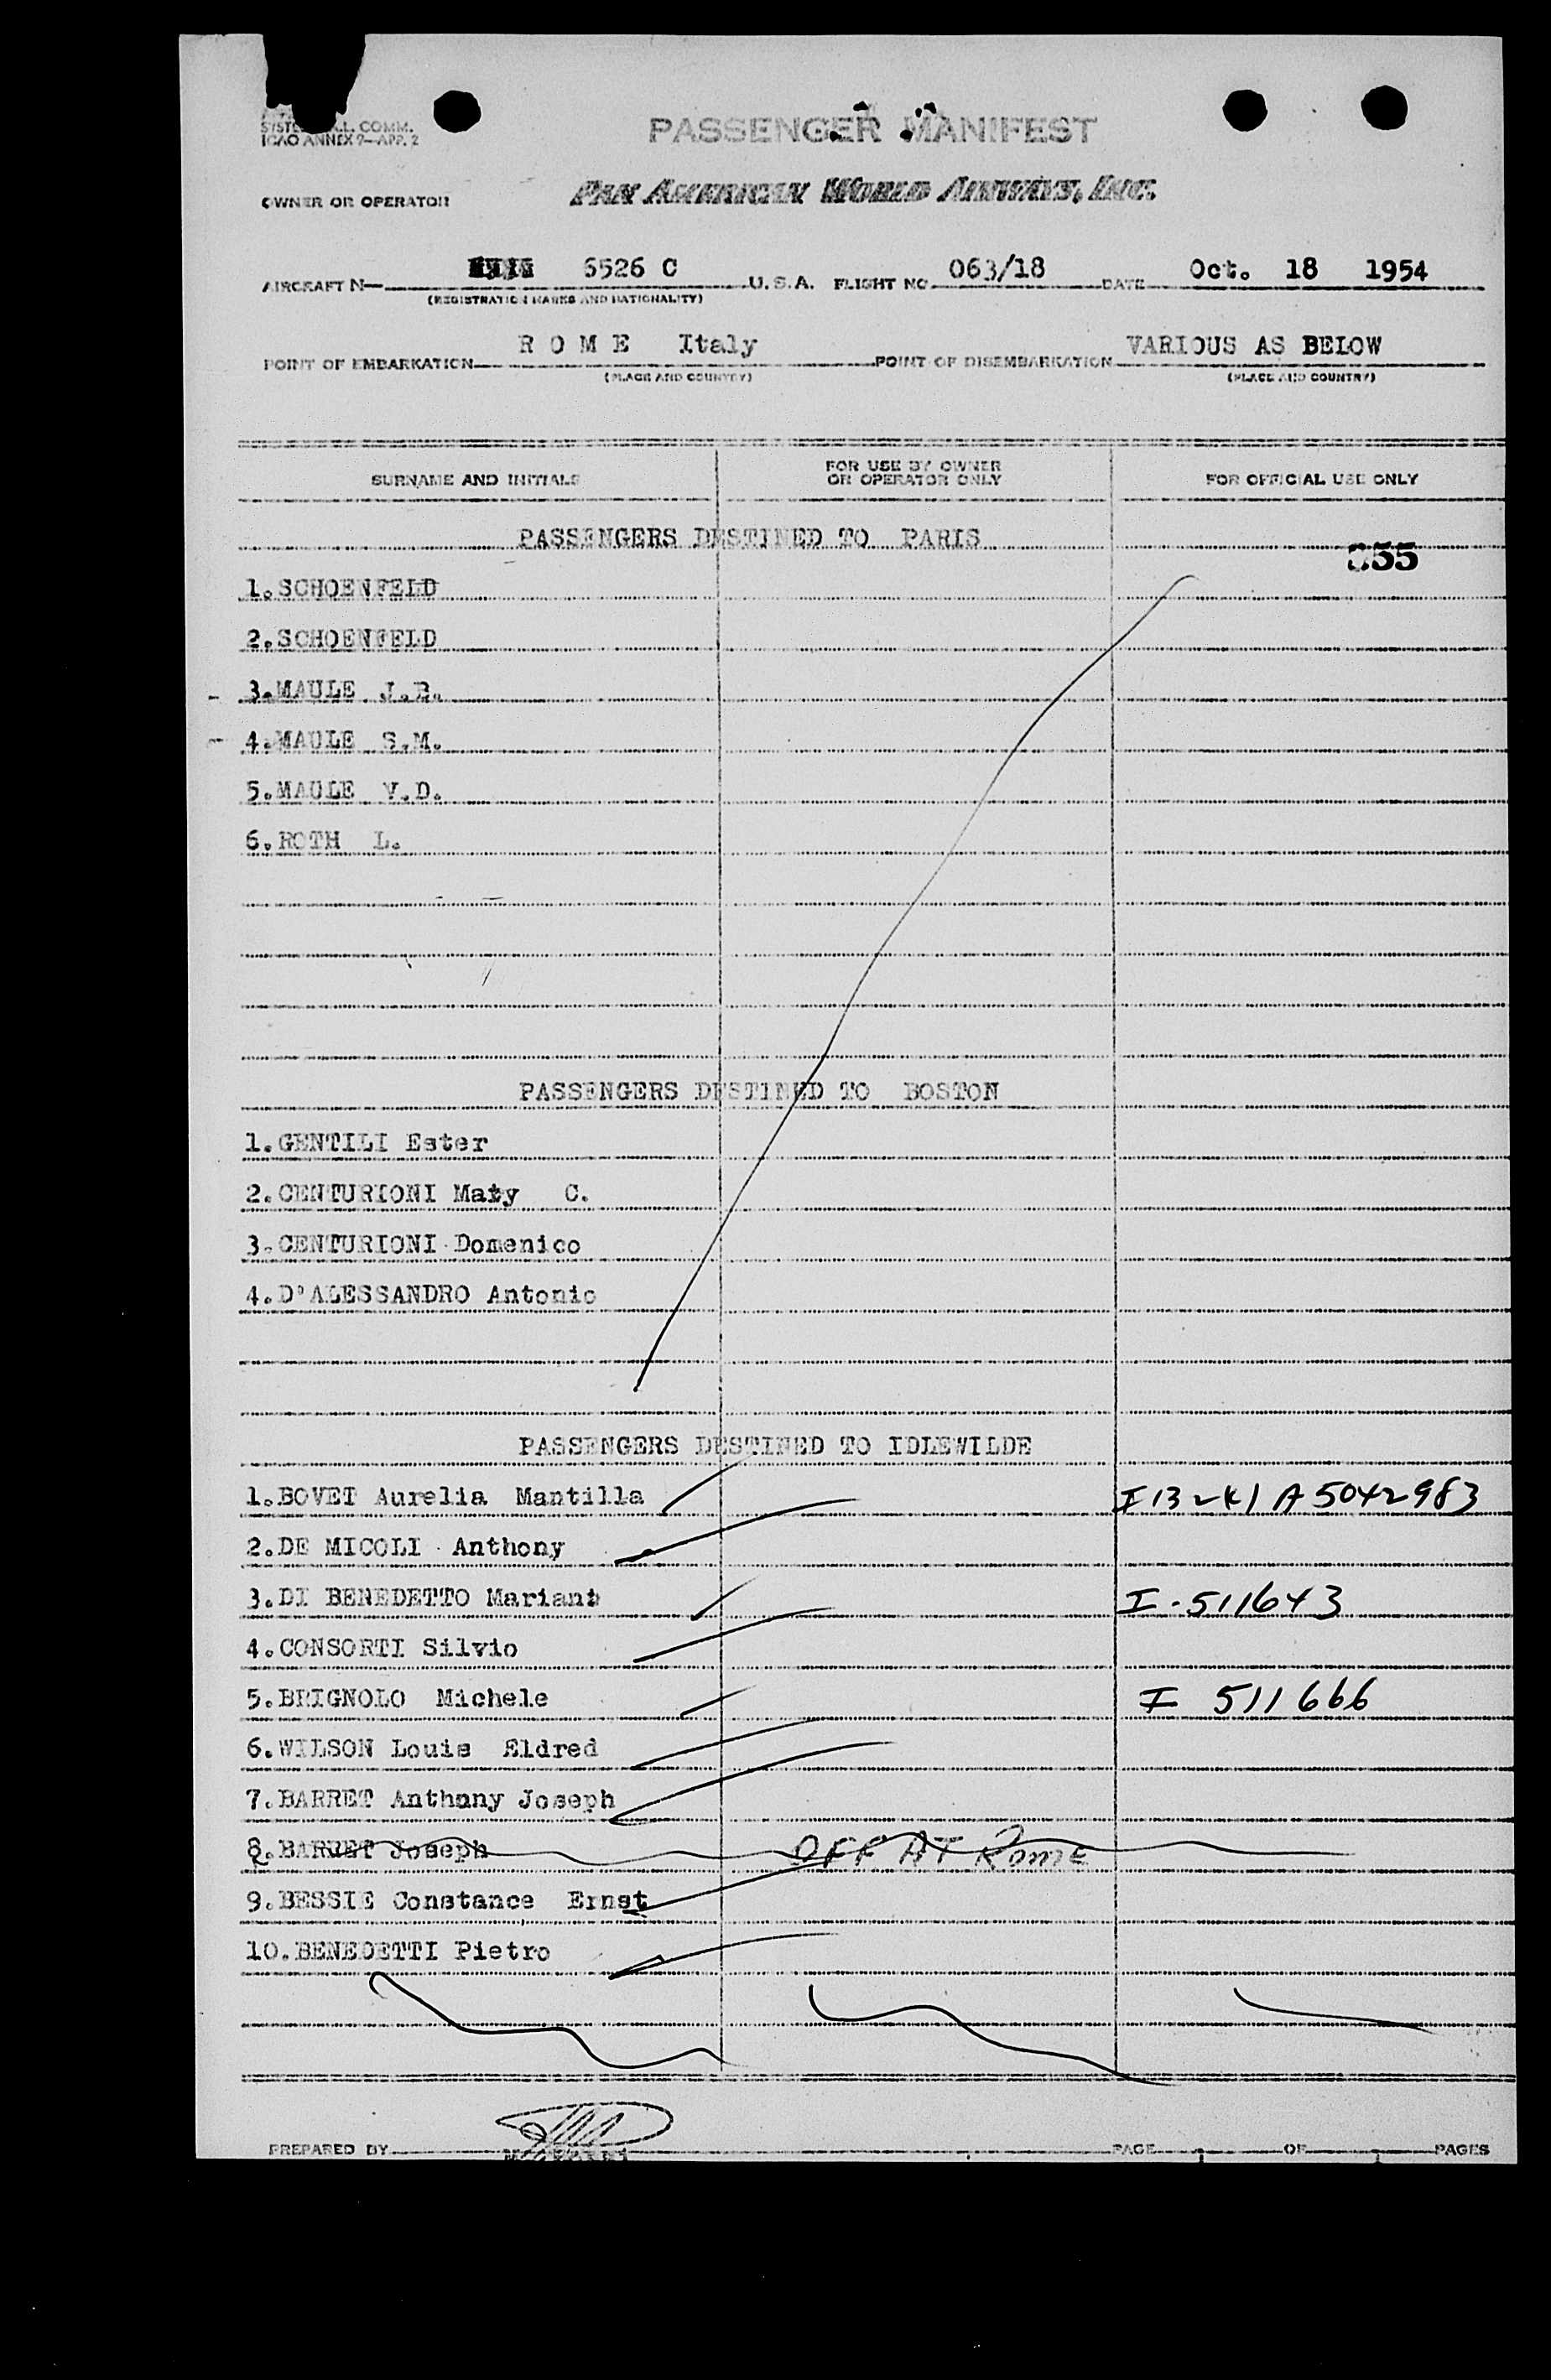 ICAO ANNEX 9—APP. 2
PASSENGER MANIFEST
OWNER OR OPERATOR PAN AMERICAN WORLD AIRWAYS, INC.
AIRCRAFT N— 6526 C U.S.A. FLIGHT NO 063/18 DATE Oct. 18 1954
(REGISTRATION MARKS AND NATIONALITY)
POINT OF EMBARKATION R O M E Italy POINT OF DISEMBARKATION VARIOUS AS BELOW
(PLACE AND COUNTRY) (PLACE AND COUNTRY)
SURNAME AND INITIALS FOR USE BY OWNER OR OPERATOR ONLY FOR OFFICIAL USE ONLY
PASSENGERS DESTINED TO PARIS
1.SCHOENFELD
2.SCHOENFELD
3.MAULE J.R.
4.MAULE S.M.
5.MAULE V.D.
6.ROTH L.
PASSENGERS DESTINED TO BOSTON
1.GENTILI Ester
2.CENTURIONI Maty C.
3.CENTURIONI Domenico
4.D'ALESSANDRO Antonio
PASSENGERS DESTINED TO IDLEWILDE
1.BOVET Aurelia Mantilla A 5042983
2.DE MICOLI Anthony
3.DI BENEDETTO Mariant I-511643
4.CONSORTI Silvio
5.BRIGNOLO Michele I 511666
6.WILSON Louis Eldred
7.BARRET Anthony Joseph
8.BARRET Joseph OFF AT Rome
9.BESSIE Constance Ernst
10.BENEDETTI Pietro
PREPARED BY PAGE OF PAGES